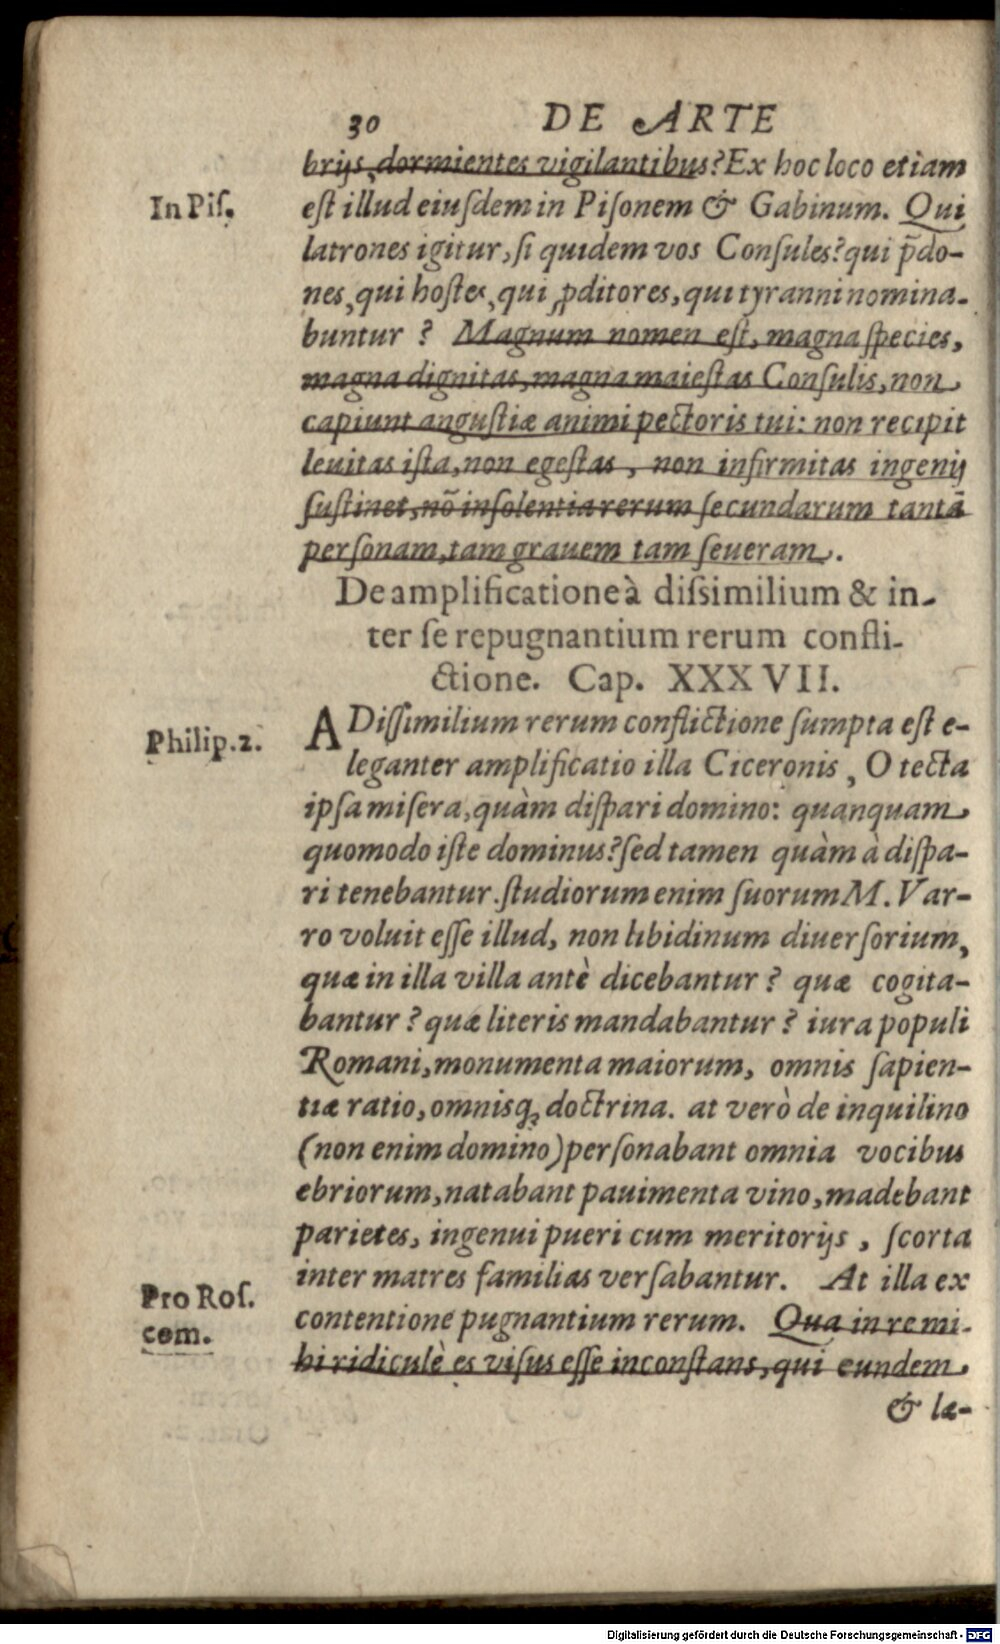 30 DE ARTE
brijs, dormientes vigilantibus? Ex hoc loco etiam
In Piſ.
eſt illud eiuſdem in Piſonem & Gabinum. Qui
latrones igitur, ſi quidem vos Conſules? qui p̄do-
nes, qui hoſtes, qui ꝓditores, qui tyranni nomina-
buntur? Magnum nomen eſt, magna ſpecies,
magna dignitas, magna maieſtas Conſulis, non
capiunt anguſtiæ animi pectoris tui: non recipit
leuitas iſta, non egeſtas, non infirmitas ingenij
ſuſtinet, nõ inſolentia rerum ſecundarum tantã
perſonam, tam grauem tam ſeueram.
De amplificatione à diſsimilium & in-
ter ſe repugnantium rerum confli-
ctione. Cap. XXXVII.
Philip. 2.
A Diſſimilium rerum conflictione ſumpta eſt e-
leganter amplificatio illa Ciceronis, O tecta
ipſa miſera, quàm diſpari domino: quanquam
quomodo iſte dominus? ſed tamen quàm à diſpa-
ri tenebantur. ſtudiorum enim ſuorum M. Var-
ro voluit eſſe illud, non libidinum diuerſorium,
quæ in illa villa antè dicebantur? quæ cogita-
bantur? quæ literis mandabantur? iura populi
Romani, monumenta maiorum, omnis ſapien-
tiæ ratio, omnisq; doctrina. at verò de inquilino
(non enim domino) perſonabant omnia vocibus
ebriorum, natabant pauimenta vino, madebant
parietes, ingenui pueri cum meritorijs, ſcorta
inter matres familias verſabantur. At illa ex
Pro Roſ.
com.
contentione pugnantium rerum. Qua in re mi-
hi ridiculè es viſus eſſe inconſtans, qui eundem
& læ-
Digitalisierung gefördert durch die Deutsche Forschungsgemeinschaft - DFG